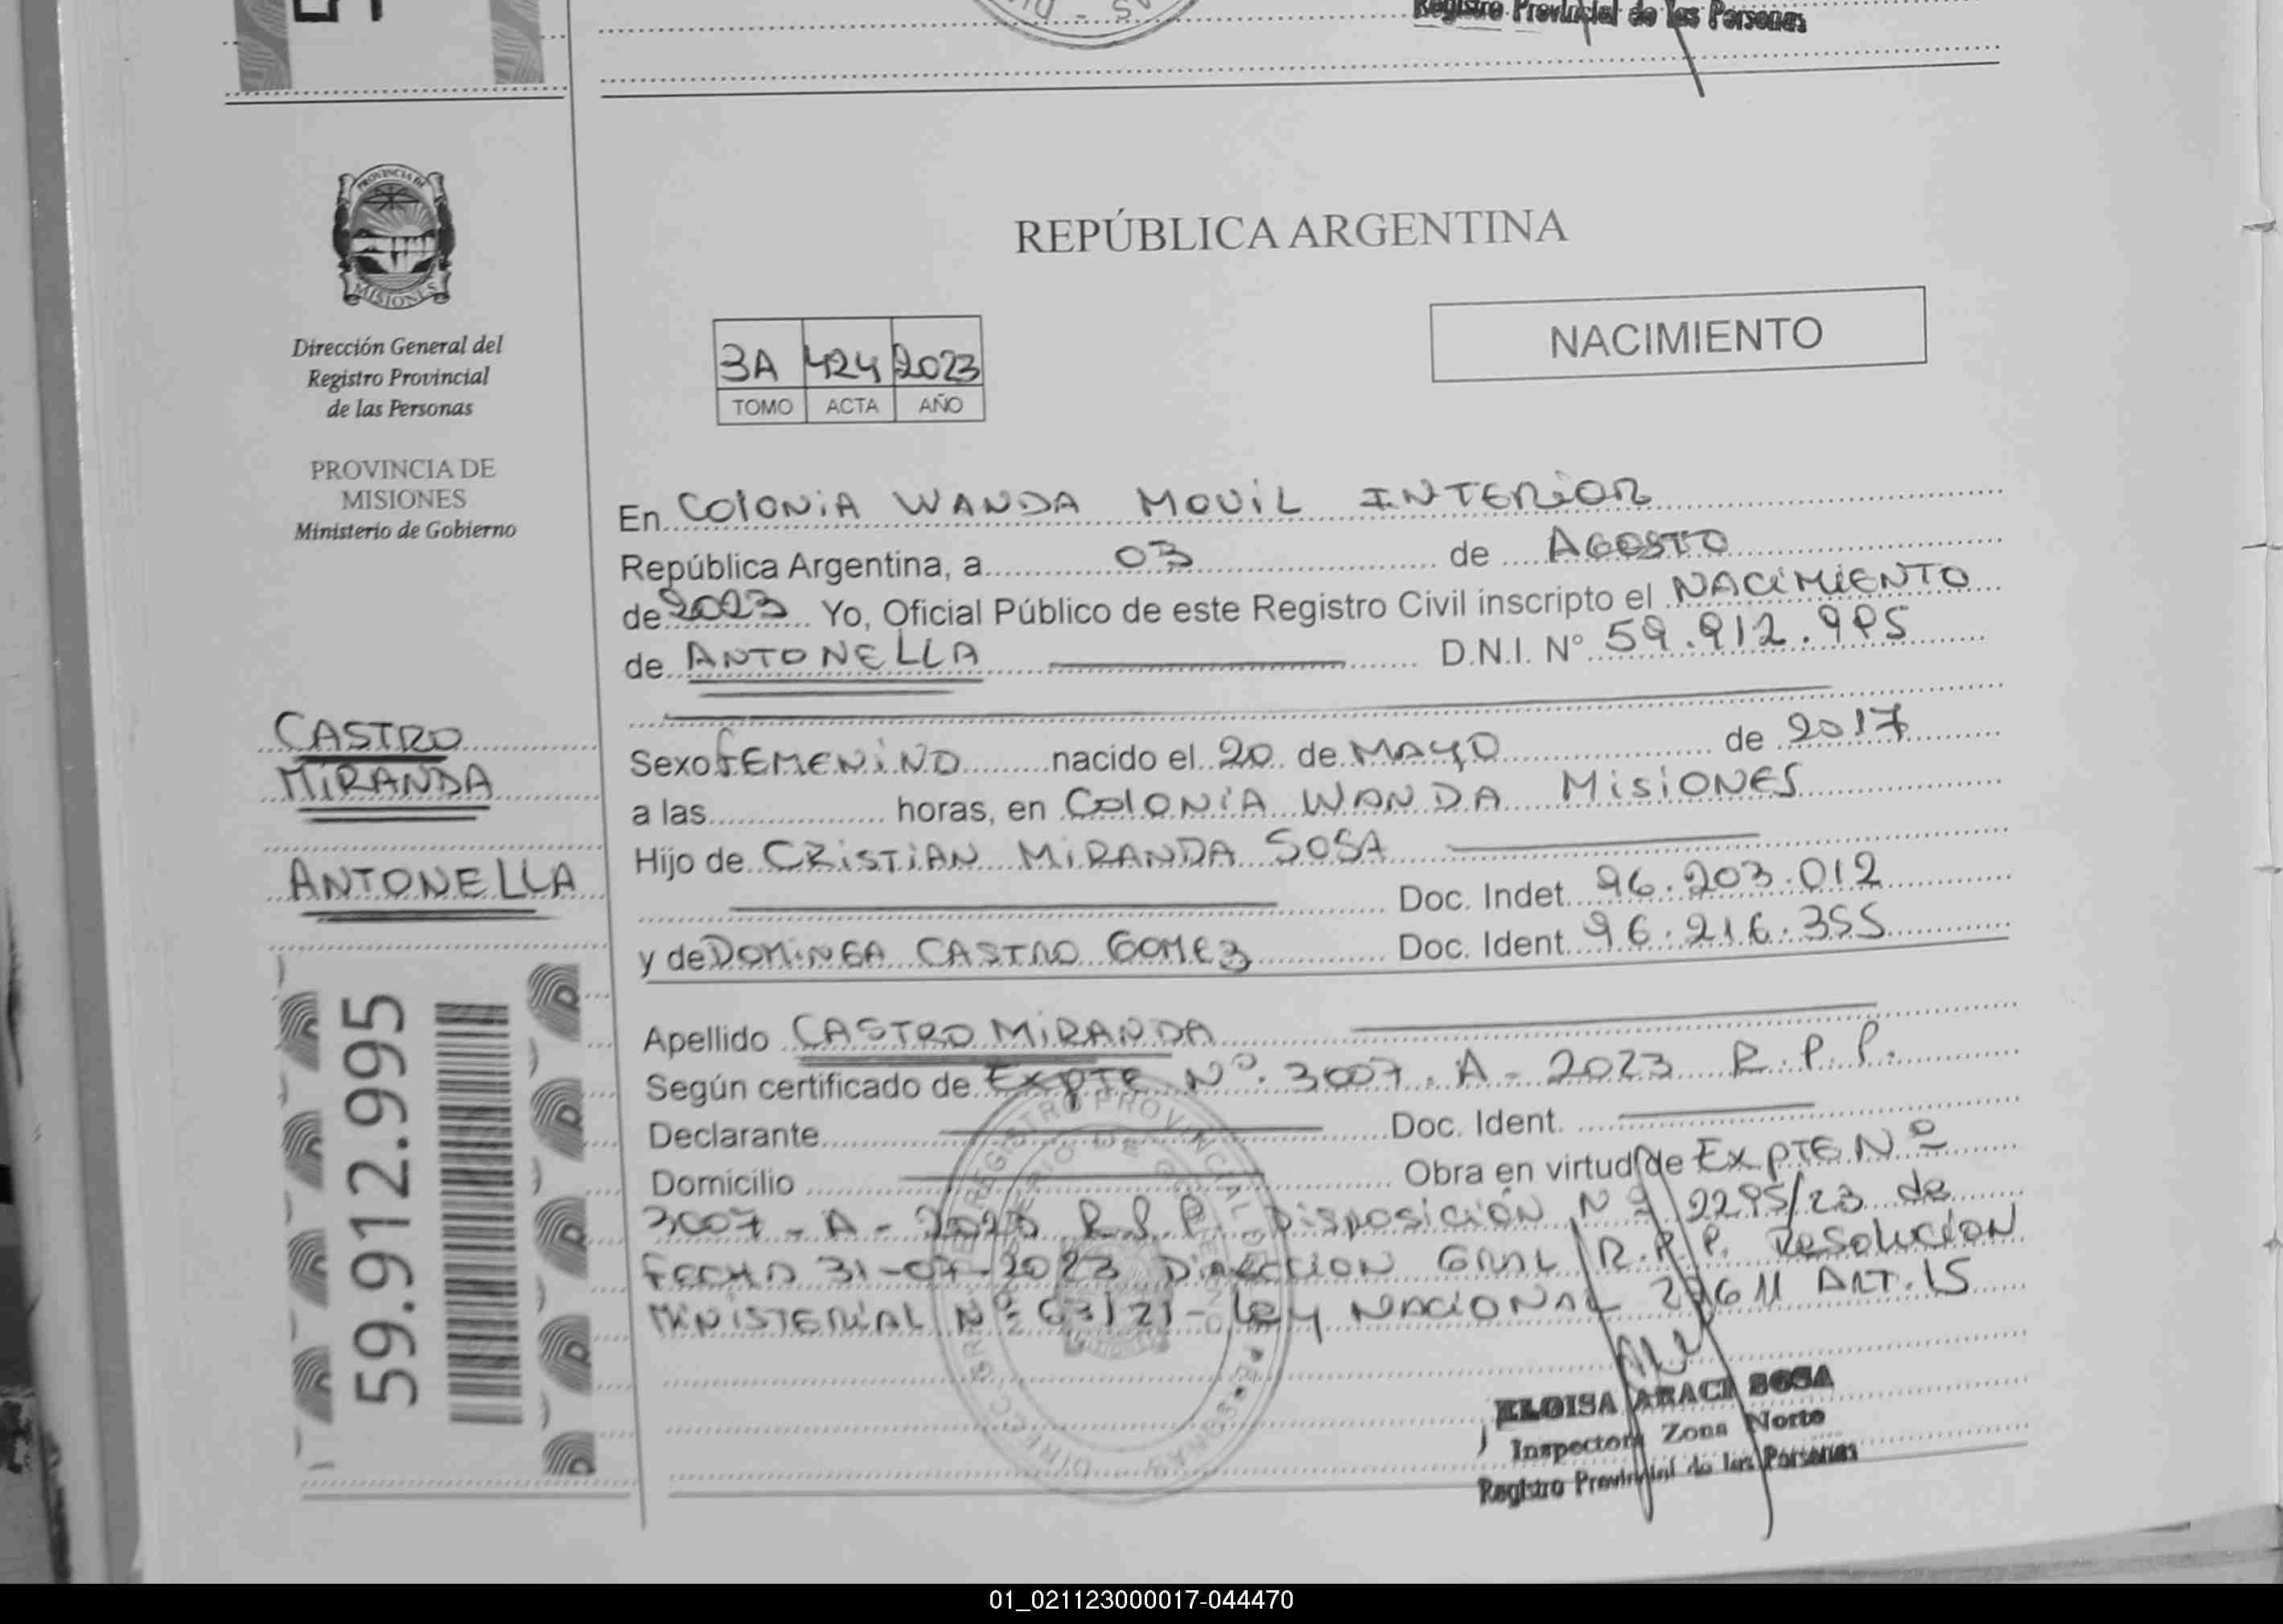 Registro Provincial de las Personas
PROVINCIA DE
MISIONES
Dirección General del
Registro Provincial
de las Personas
PROVINCIA DE
MISIONES
Ministerio de Gobierno
CASTRO
MIRANDA
ANTONELLA
59.912.995
REPÚBLICA ARGENTINA
NACIMIENTO
3A 424 2023
TOMO ACTA AÑO
En COLONIA WANDA MOVIL INTERIOR
República Argentina, a 03 de AGOSTO
de 2023 Yo, Oficial Público de este Registro Civil inscripto el NACIMIENTO
de ANTONELLA D.N.I. Nº 59.912.995
Sexo FEMENINO nacido el 20 de MAYO de 2017
a las horas, en COLONIA WANDA MISIONES
Hijo de CRISTIAN MIRANDA SOSA
Doc. Indet. 96.203.012
y de DOMINGA CASTRO GOMEZ Doc. Ident. 96.216.355
Apellido CASTRO MIRANDA
Según certificado de EXPTE Nº. 3007. A - 2023 R.P.P.
Declarante Doc. Ident.
Domicilio Obra en virtud de EXPTE Nº
3007 - A - 2023 R.P.P. Disposición Nº 2295/23 de
FECHA 31-07-2023 DIRECCION GRAL R.P.P. Resolución
MINISTERIAL Nº 63/21 - Ley NACIONAL ART. 15
ELOISA ARACI SOSA
Inspectora Zona Norte
Registro Provincial de las Personas
01_021123000017-044470